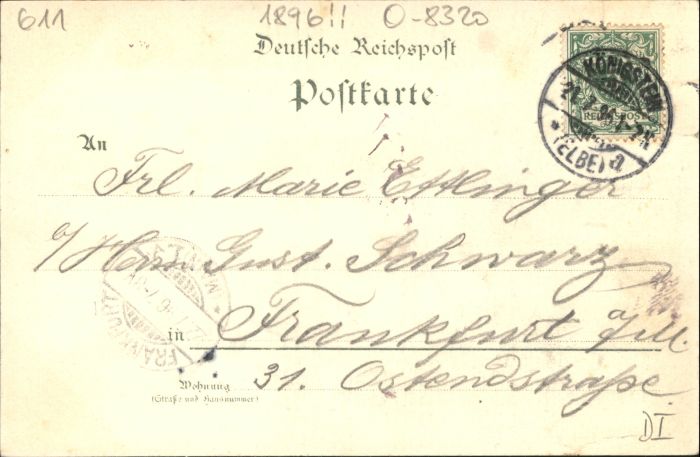 611 1896!! O-8320
Deutsche Reichspost
Postkarte
KÖNIGSTEIN
REICHSPOST
(ELBE)
An
Frl. Marie Ettlinger
a/ Herrn Gust. Schwarz
in Frankfurt a/M.
FRANKFURT
Wohnung
(Straße und Hausnummer)
31. Ostendstraße.
DI